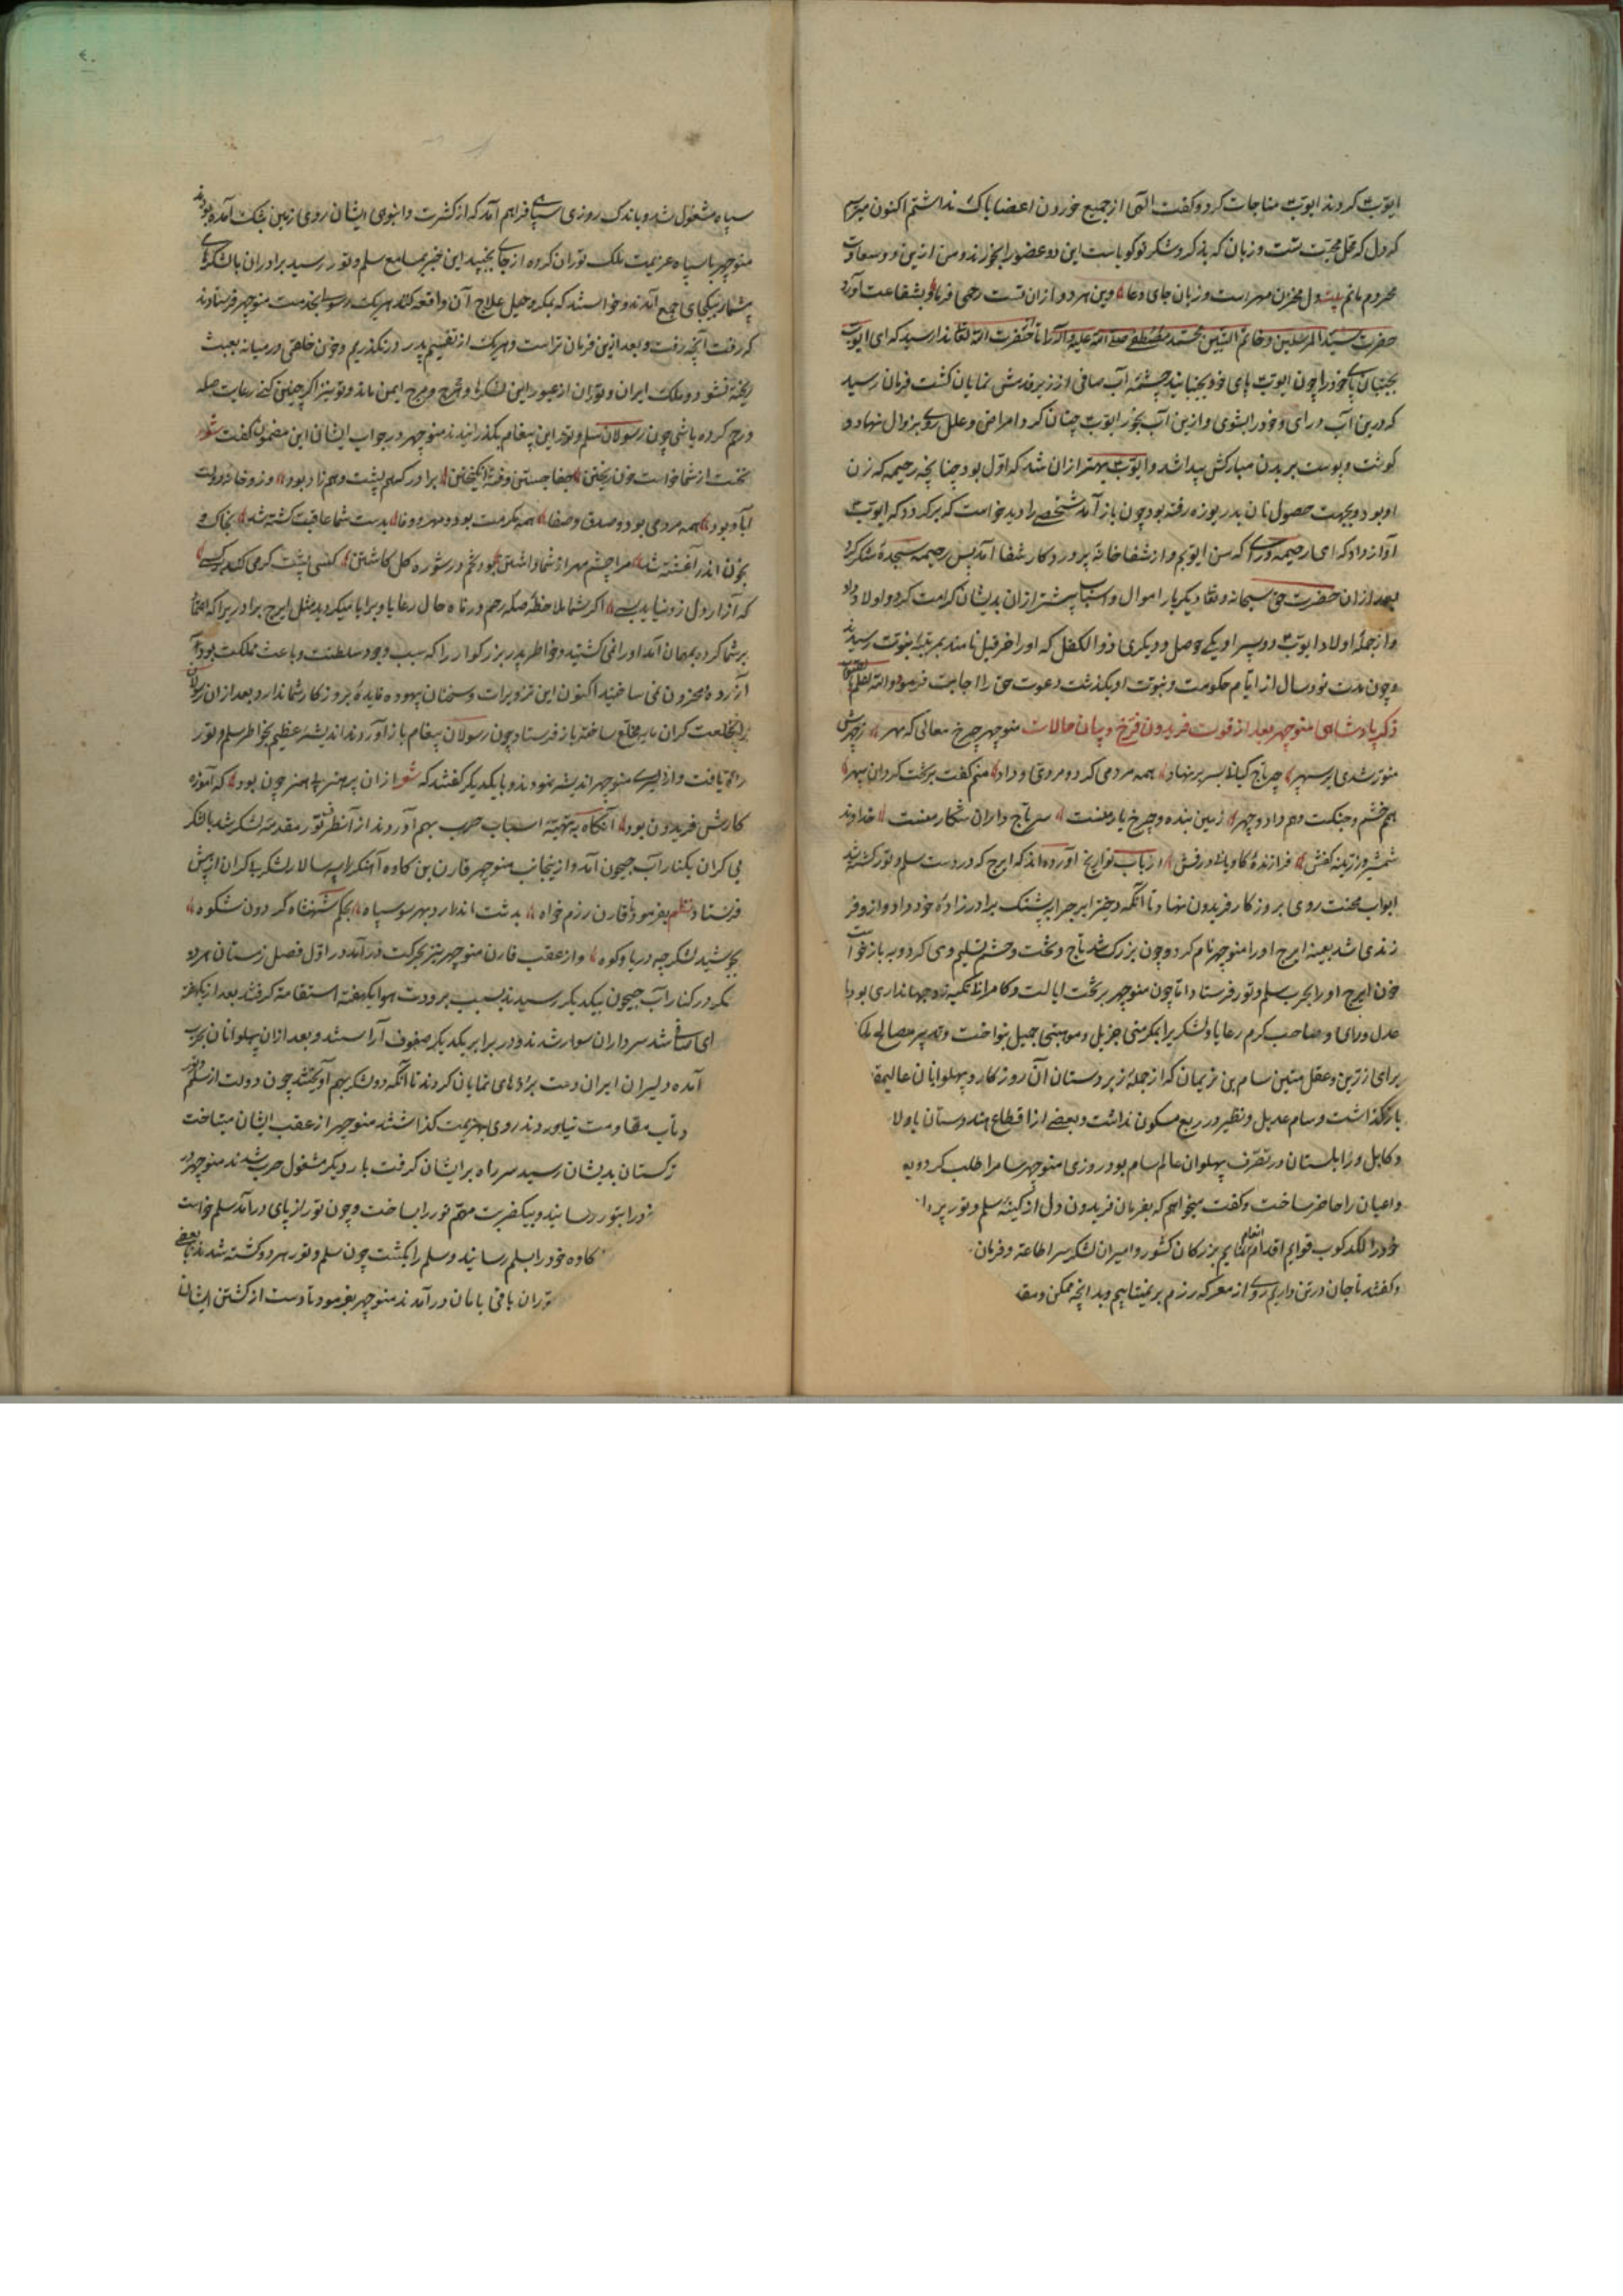 ایوب کردند ایوب مناجات کرد و گفت الهی از جمیع خوردن اعضا باک نداشتم اکنون میترسم
که دل که محل محبت تست و زبان که بذکر و شکر تو گویاست این دو عضو را بخورند و من ازین دو سعادت
محروم مانم بیت دل مخزن مهر است و زبان جای دعا وین هر دو از آن تست رحمی فرما و بشفاعت آورد
حضرت سید المرسلین و خاتم النبیین محمد مصطفی صلی الله علیه و آله را تا حضرت الله تعالی ندا رسید که ای ایوب
بجنبان پای خود را چون ایوب پای خود بجنبانید چشمه آب صافی از زیر قدمش نمایان گشت فرمان رسید
که درین آب در آی و خود را بشوی و ازین آب بخور ایوب چنان کرد امراض و علل روی بزوال نهاد و
گوشت و پوست بر بدن مبارکش پیدا شد و ایوب بهتر از آن شد که اول بود چنانچه رحیمه که زن
او بود و بجهت حصول نان بدریوزه رفته بود چون باز آمد شخصی را دید خواست که برگردد که ایوب
آواز داد که ای رحیمه در آی که من ایوبم و از شفاخانه پروردگار شفا آمد پس رحیمه سجده شکر کرد
بعد از آن حضرت حق سبحانه و تعالی دیگر بار اموال و اسباب بیشتر از آن بدیشان کرامت کرد و اولاد داد
و از جمله اولاد ایوب دو پسر او یکی حومل و دیگری ذوالکفل که او را حزقیل نامند بمرتبه نبوت رسیدند
و چون مدت نود سال از ایام حکومت و نبوت او بگذشت دعوت حق را اجابت فرمود و الله اعلم
ذکر پادشاهی منوچهر بعد از فوت فریدون فرخ و بیان حالات منوچهر چرخ معانی که مهر ز چهرش
منور شدی بر سپهر چو تاج کیانی بسر بر نهاد همه مردمی کرد و مردی و داد منم گفت بر تخت گردان سپهر
هم خشم و جنگست و هم داد و چهر زمین بنده و چرخ یار منست سر تاج داران شکار منست خداوند
شمشیر و زرینه کفش فرازنده کاویانی درفش ارباب تواریخ آورده‌اند که ایرج که در دست سلم و تور کشته شد
ابواب محنت روی بروزگار فریدون نهاد تا آنکه دختر ایرج را به پشنگ برادرزاده خود داد و از او فر
زندی شد بعینه ایرج او را منوچهر نام کرد و چون بزرگ شد تاج و تخت و حشم تسلیم وی کرد و به بازخواست
خون ایرج او را بحرب سلم و تور فرستاد اما چون منوچهر بر تخت ایالت و کامرانی تکیه زد و جهانداری بود با
عدل و رای و صاحب کرم رعایا و لشکر را بمکرمتی جزیل و موهبتی جمیل بنواخت و تدبیر مصالح ملک
برای رزین و عقل متین سام بن نریمان که از جمله زبردستان آن روزگار و پهلوانان عالیمقد
باز گذاشت و سام عدیل و نظیر در ربع مسکون نداشت و بعضی از اقطاع هندوستان با ولا
و کابل و زابلستان در تصرف پهلوان عالم سام بود روزی منوچهر سام را طلب کرد و به
و اعیان را حاضر ساخت و گفت میخواهم که بفرمان فریدون دل از کینه سلم و تور پردا
خود را لگدکوب قوایم اقدام انتقام نمایم بزرگان کشور و امیران لشکر سر اطاعة و فرمان
و گفتند تا جان در تن داریم روی از معرکه رزم بر نمیتابیم و بدانچه ممکن و مقد
سپاه مشغول شد و باندک روزی سپاهی فراهم آمد که از کثرت و انبوهی ایشان روی زمین بتنگ آمده بودند
منوچهر با سپاه عزیمت ملک توران کرده از جای بجنبید این خبر بمسامع سلم و تور رسید برادران با لشکرهای
بیشمار بیکجای جمع آمدند و خواستند که بمکر و حیل علاج آن واقعه کنند هر یک رسولی بخدمت منوچهر فرستادند
که رفت آنچه رفت و بعد ازین فرمان تراست و هر یک از تقسیم پدر در نگذریم و خون خلقی در میانه بعبث
ریخته نشود و ملک ایران و توران از عبور این لشکرها و هرج و مرج ایمن ماند و تو نیز اگر چنین کنی رعایت صله
و رحم کرده باشی چون رسولان سلم و تور این پیغام بگذرانیدند منوچهر در جواب ایشان این مضمون گفت شعر
نخست از شما خواست خون ریختن جفا جستن و فتنه انگیختن برادر که هم پشت و هم زاد بود و زو خانه دولت
آباد بود همه مردمی بود و صدق و صفا همه مکرمت بود و مهر و وفا بدست شما عاقبت کشته شد بخاک و
بخون اندر آغشته شد مرا چشم مهر از شما داشتن بود تخم در شوره گل کاشتن کسی پشت گرمی کند بر کسی
که آزار دل زو نیاید بسی اگر شما ملاحظه صله رحم و رفاه حال رعایا و برایا میکردید مثل ایرج برادر را که التجا
بر شما کرده بمهمان آمد او را نمی کشتید و خاطر پدر بزرگوار را که سبب وجود سلطنت و باعث مملکت بود
آزرده و محزون نمی ساختید اکنون این تزویرات و سخنان بیهوده فایده بروزگار شما ندارد بعد از آن رسولان
را بخلعت گران مایه مخلع ساخته باز فرستاد چون رسولان پیغام باز آوردند اندیشه عظیم بخاطر سلم و تور
راه یافت و از دلیری منوچهر اندیشه نمودند و با یکدیگر گفتند که شعر از آن پر هنر بی هنر چون بود که آموزه
کارش فریدون بود آنگاه به تهیه اسباب حرب بهم آوردند از آنطرف تور مقدمه لشکر شد با لشکر
بی کران بکنار آب جیحون آمد و از ینجانب منوچهر قارن بن کاوه آهنگر را سپه سالار لشکر بی کران از پیش
فرستاد نظم بفرمود تا قارن رزم خواه بدشت اندر آرد ز هر سو سپاه بحکم شهنشاه گردون شکوه
بجوشید لشکر چه دریا و کوه و از عقب قارن منوچهر نیز بحرکت در آمد در اول فصل زمستان هر دو
لشکر در کنار آب جیحون بیکدیگر رسیدند بسبب برودت هوا یکهفته استقامة گرفتند بعد از یکهفته
شد سرداران سوار شدند و در برابر یکدیگر صفوف آراستند و بعد از آن پهلوانان بحرب
آمده دلیران ایران دست بردهای نمایان کردند تا آنکه دو لشکر بهم آویختند چون دولت از سلم و تور
و تاب مقاومت نیاوردند روی بهزیمت گذاشتند منوچهر از عقب ایشان میتاخت
ترکستان بدیشان رسید سر راه بر ایشان گرفت بار دیگر مشغول حرب شدند منوچهر
خود را بتور رسانید و بیکضرب مهم تور را بساخت و چون تور از پای در آمد سلم خواست
کاوه خود را بسلم رسانید و سلم را بکشت چون سلم و تور هر دو کشته شدند بعضی
توران باقی بامان در آمدند منوچهر بفرمود تا دست از کشتن ایشان